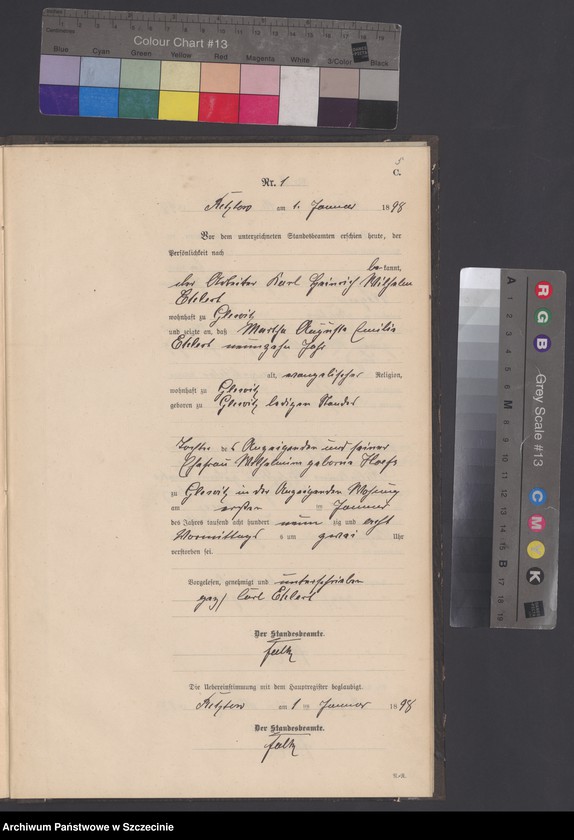 Colour Chart #13
Blue Cyan Green Yellow Red Magenta White 3/Color Black
5
C.
Nr. 1
am 1. Januar 1898
Vor dem unterzeichneten Standesbeamten erschien heute, der
Persönlichkeit nach
bekannt,
der Arbeiter Karl Heinrich Wilhelm
Ehlert
wohnhaft zu Glewitz
und zeigte an, daß Martha Auguste Emilie
Ehlert neunzehn Jahr
alt, evangelischer Religion,
wohnhaft zu Glewitz
geboren zu Glewitz ledigen Standes
Tochter des Anzeigenden und seiner
Ehefrau Wilhelmine geborne
zu Glewitz in des Anzeigenden Wohnung
am ersten Januar
des Jahres tausend acht hundert neunzig und acht
Vormittags um zwei Uhr
verstorben sei.
Vorgelesen, genehmigt und unterschrieben
gez/ Carl Ehlert
Der Standesbeamte.
Falk
Die Uebereinstimmung mit dem Hauptregister beglaubigt.
am 1 Januar 1898
Der Standesbeamte.
Falk
A 1 2 3 4 5 6 M 8 9 10 11 12 13 14 15 B 17 18 19
R G B
Grey Scale #13
C M Y K
Archiwum Państwowe w Szczecinie